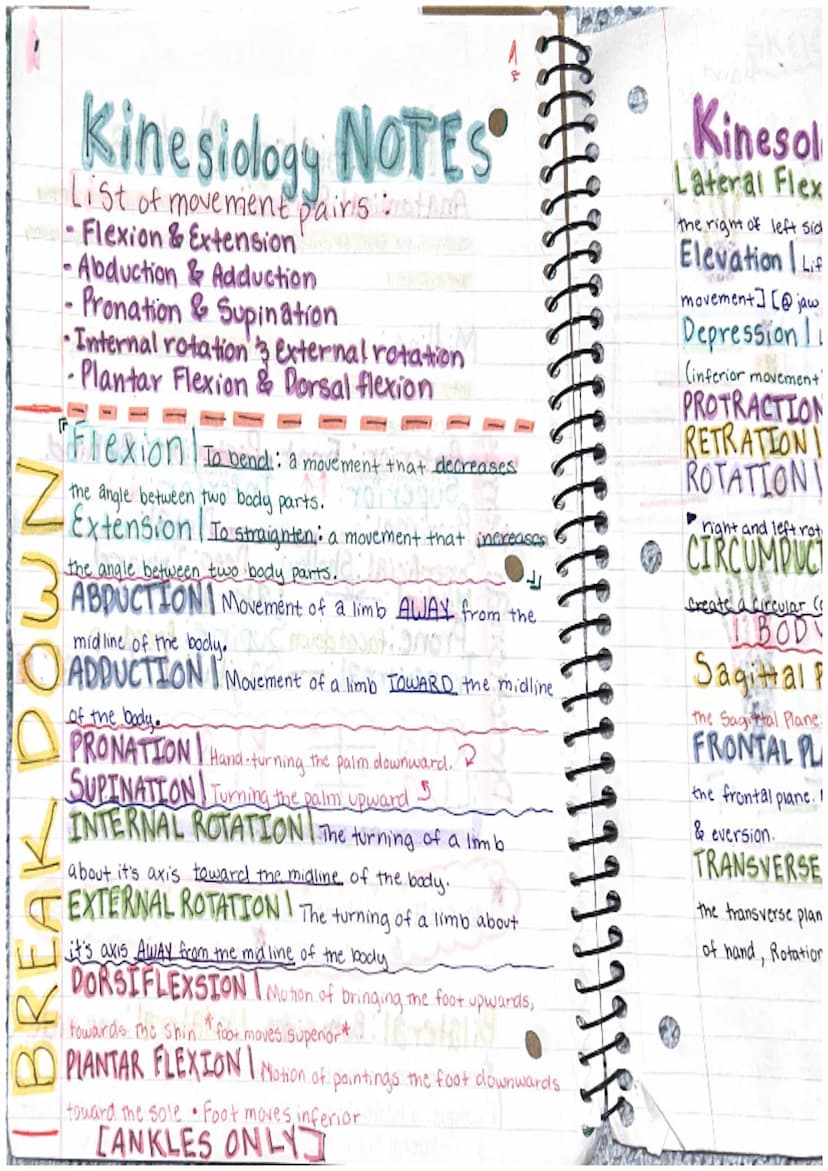 Kinesiology NOTES
List of movement pairs:
- Flexion & Extension
- Abduction & Adduction
- Pronation & Supination
· Internal rotation & External rotation
- Plantar Flexion & Dorsal flexion
BREAK DOWN
Flexion | To bend: a movement that decreases
the angle between two body parts.
Extension | To straighten: a movement that increases
the angle between two body parts.
ABDUCTION | Movement of a limb AWAY from the
midline of the body.
ADDUCTION | Movement of a limb TOWARD the midline
of the body.
PRONATION | Hand-turning the palm downward.
SUPINATION | Turning the palm upward
INTERNAL ROTATION | The turning of a limb
about it's axis toward the midline of the body.
EXTERNAL ROTATION | The turning of a limb about
it's axis AWAY from the midline of the body
DORSIFLEXSION | Motion of bringing the foot upwards,
towards the shin *foot moves superior*
PLANTAR FLEXION | Motion of pointings the foot downwards
toward the sole • Foot moves inferior
[ANKLES ONLY]
Kinesol
Lateral Flex
the right of left sid
Elevation | Lif
movement] [@ jaw
Depression |
(inferior movement
PROTRACTION
RETRATION |
ROTATION |
right and left rot
CIRCUMDUCT
create a circular (c
BODY
Sagittal P
the Sagittal Plane.
FRONTAL PLA
the frontal plane.
& eversion.
TRANSVERSE
the transverse plan
of hand, Rotation